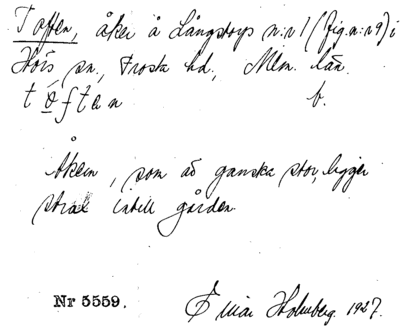 Toften, åker å Långstorps n:r 1 (fig. n:r 9) i
Hörs sn, Frosta hd, Mlm. län
tòften b.
Åkern, som är ganska stor, ligger
strax intill gården.
Nr 5559. Einar Holmberg. 1927.